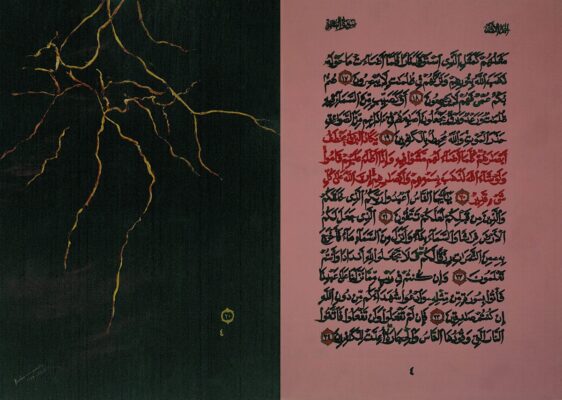 الجزء الأول
سورة البقرة
مثلهم كمثل الذي استوقد نارا فلما أضاءت ما حوله
ذهب الله بنورهم وتركهم في ظلمت لا يبصرون ١٧ صم
بكم عمي فهم لا يرجعون ١٨ أو كصيب من السماء فيه
ظلمت ورعد وبرق يجعلون أصبعهم في ءاذانهم من الصوعق
حذر الموت والله محيط بالكفرين ١٩ يكاد البرق يخطف
أبصرهم كلما أضاء لهم مشوا فيه وإذا أظلم عليهم قاموا
ولو شاء الله لذهب بسمعهم وأبصرهم إن الله على كل
شيء قدير ٢٠ يأيها الناس اعبدوا ربكم الذي خلقكم
والذين من قبلكم لعلكم تتقون ٢١ الذي جعل لكم
الأرض فرشا والسماء بناء وأنزل من السماء ماء فأخرج
به من الثمرت رزقا لكم فلا تجعلوا لله أندادا وأنتم
تعلمون ٢٢ وإن كنتم في ريب مما نزلنا على عبدنا
فأتوا بسورة من مثله وادعوا شهداءكم من دون الله
إن كنتم صدقين ٢٣ فإن لم تفعلوا ولن تفعلوا فاتقوا
النار التي وقودها الناس والحجارة أعدت للكفرين ٢٤
٤
٢٠
٤